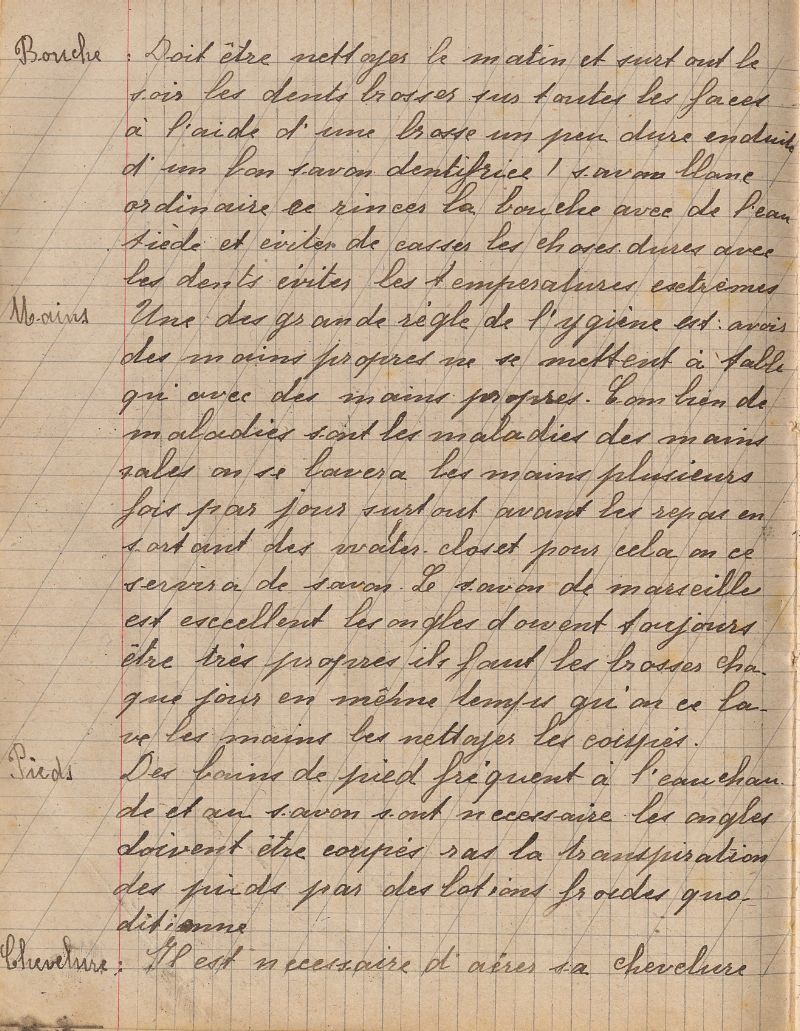 Bouche : Doit être nettoyer le matin et surtout le
soir les dents brosser sur toutes les faces
à l'aide d'une brosse un peu dure enduite
d'un bon savon dentifrice ! savon blanc
ordinaire ce rincer la bouche avec de l'eau
tiède et éviter de casser les choses dures avec
les dents éviter les temperatures esctrèmes
Mains Une des grande règle de l'ygiène est: avoir
des mains propres ne se mettent à table
qu'avec des mains propres. Combien de
maladies sont les maladies des mains
sales on se lavera les mains plusieurs
fois par jour surtout avant les repas en
sortant des water-closet pour cela on ce
servira de savon. Le savon de marseille
est esccellent les ongles doivent toujours
être très propres ils faut les brosser cha-
que jour en même temps qu'on ce la-
ve les mains les nettoyer les coupés.
Pieds Des bains de pied fréquent à l'eau chau-
de et au savon sont necessaire les ongles
doivent être coupés ras la transpiration
des pieds par des lotions froides quo-
ditienne
Chevelure : Il est necessaire d'aérer sa chevelure